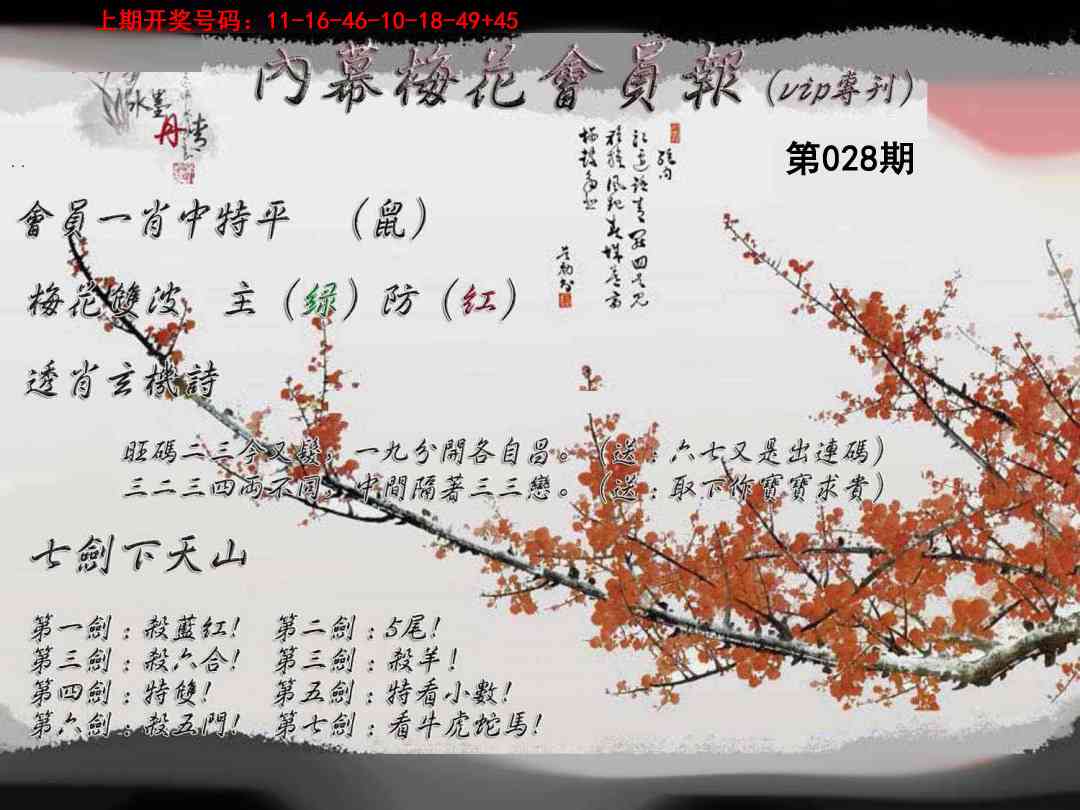 上期开奖号码：11-16-46-10-18-49+45
內幕梅花會員報（vip專刊）
水墨
丹青
第028期
會員一肖中特平 （鼠）
梅花雙波 主（绿）防（红）
透肖玄機詩
旺碼二三今又發，一九分開各自昌。（送：六七又是出連碼）
三二三四兩不同，中間隔著三三戀。（送：取下你寶寶求貴）
七劍下天山
第一劍：殺藍紅！ 第二劍：5尾！
第三劍：殺六合！ 第三劍：殺羊！
第四劍：特雙！ 第五劍：特看小數！
第六劍：殺五門！ 第七劍：看牛虎蛇馬！